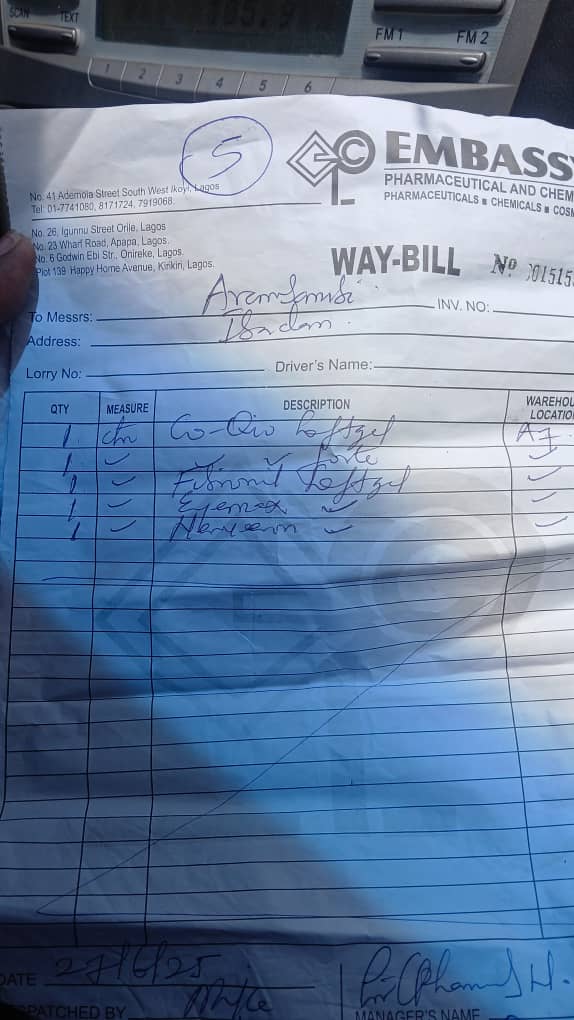 SCAN TEXT
FM 1 FM 2
1 2 3 4 5 6
5
EMBASS
PHARMACEUTICAL AND CHEM
PHARMACEUTICALS ■ CHEMICALS ■ COS
No. 41 Ademola Street South West Ikoyi, Lagos
Tel: 01-7741080, 8171724, 7919068.
No. 26, Igunnu Street Orile, Lagos
No. 23 Wharf Road, Apapa, Lagos.
No. 6 Godwin Ebi Str., Onireke, Lagos.
Plot 139 Happy Home Avenue, Kirikiri, Lagos.
WAY-BILL
No
To Messrs:
INV. NO:
Address: Ibadan
Lorry No: Driver's Name:
QTY MEASURE DESCRIPTION WAREHOU
LOCATIO
1 ctn Softgel
1 forte
1 Softgel
1 Eyemax
1
DATE 27/6/25
PATCHED BY
MANAGER'S NAME